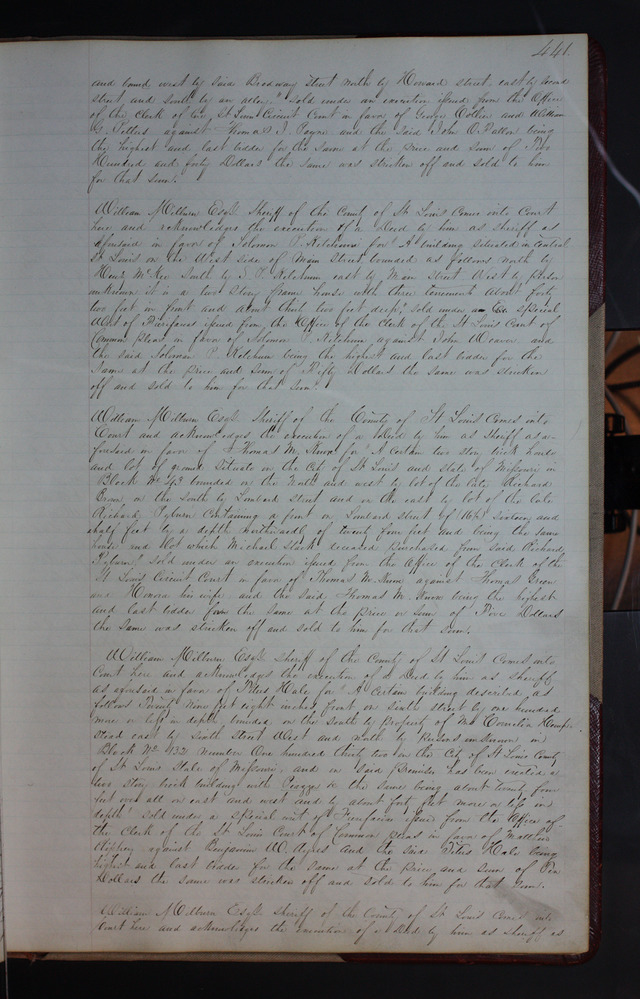 441.
and bound west by said Broadway Street North by Howard street, east by
street and South by an alley." sold under an execution issued from the Office
of the Clerk of the St Louis Circuit Court in favor of George Collier and William
G. Pettus against Thomas J. Payne and the said John O'Fallon being
the highest and last bidder for the same at the price and sum of Five
Hundred and forty Dollars the same was stricken off and sold to him
for that sum.
William Milburn Esqr. Sheriff of the County of St Louis Comes into Court
here and acknowledges the execution of a Deed by him as sheriff as
aforesaid in favor of Solomon P. Ketchum for "A building situated in Central
St Louis on the West side of Main Street bounded as follows north by
Henry McKee South by S. P. Ketchum east by Main Street West by
unknown it is a two Story frame house with three tenement about forty
two feet in front and about thirty two feet deep" sold under a special
Writ of Fierifacias issued from the Office of the Clerk of the St Louis Court of
Common pleas in favor of Solomon P. Ketchum against John and
the said Solomon P. Ketchum being the highest and last bidder for the
Same at the price and sum of Fifty Dollars the same was stricken
off and sold to him for that sum.
William Milburn Esqr. Sheriff of the County of St Louis Comes into
Court and acknowledges the execution of a Deed by him as Sheriff as a-
foresaid in favor of Thomas M. for "A certain two story brick house
and lot of ground Situate in the City of St Louis and state of Missouri in
Block No 43 bounded on the North and west by lot of the late Richard
on the South by Lombard street and on the east by lot of the late
Richard Containing a front on Lombard street of (16½) sixteen and
a half feet by a depth northwardly of twenty four feet and being the same
house and lot which Michael Stark deceased purchased from said Richard
" sold under an execution issued from the Office of the Clerk of the
St Louis Circuit Court in favor of Thomas M. against Thomas
and Honora his wife and the said Thomas M. being the highest
and last bidder for the same at the price or sum of Five Dollars
the same was stricken off and sold to him for that sum.
William Milburn Esqr. Sheriff of the County of St Louis Comes into
Court here and acknowledges the execution of a Deed by him as sheriff
as aforesaid in favor of Titus Hale for "A Certain building described as
follows Twenty Nine feet eight inches front on sixth street by one hundred
more or less in depth, bounded on the South by property of
stead east by Sixth Street West and North by in
Block No 132 number One hundred thirty two in the City of St Louis County
of St Louis State of Missouri, and on said premises has been erected a
two story brick building with Piazza on the same being about twenty four
feet over all on east and west and by about forty feet more or less in
depth" sold under a special writ of Fierifacias issued from the Office of
the Clerk of the St Louis Court of Common pleas in favor of Matthew
against Benjamin W. Ayres and the said Titus Hale being
highest and last bidder for the same at the price and sum of Ten
Dollars the same was stricken off and sold to him for that sum.
William Milburn Esqr. Sheriff of the County of St Louis Comes into
Court here and acknowledges the execution of a Deed by him as Sheriff as